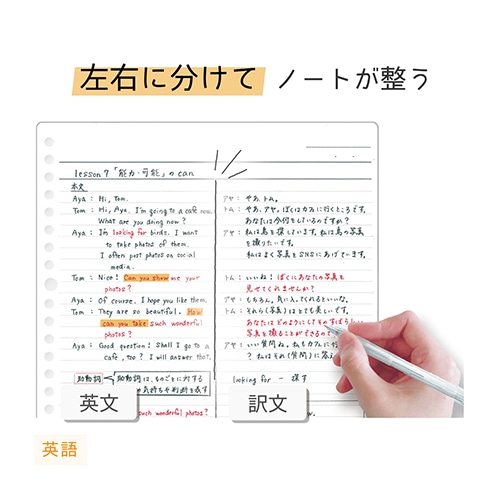 左右に分けて ノートが整う
lesson 7 「能力・可能」の can
本文
Aya : Hi, Tom.
Tom : Hi, Aya. I'm going to a cafe now.
What are you doing now?
Aya : I'm looking for birds. I want
to take photos of them.
I often post photos on social
media.
Tom : Nice! Can you show me your
photos?
Aya : Of course. I hope you like them.
Tom : They are so beautiful. How
can you take such wonderful
photos?
Aya : Good question! Shall I go to a
cafe, too? I will answer that.
助動詞 助動詞は、ものごとに対する
気持ちや判断を表す
such wonderful photos?
アヤ : やあ、トム。
トム : やあ、アヤ。ぼくはカフェに行くところです。
あなたは今何をしているのですか?
アヤ : 私は鳥を探しています。私は鳥の写真
を撮りたいです。
私はよく写真をSNSにあげています。
トム : いいね! ぼくにあなたの写真を
見せてくれませんか?
アヤ : もちろん。気に入ってくれるといいな。
トム : それら(写真)はとても美しいです。
あなたはどのようにしてそのすばらしい
写真を撮ることができるので
アヤ : いい質問ね。私もカフェに行
? 私はそれ(質問)に答え
looking for ー 探す
英文
訳文
英語